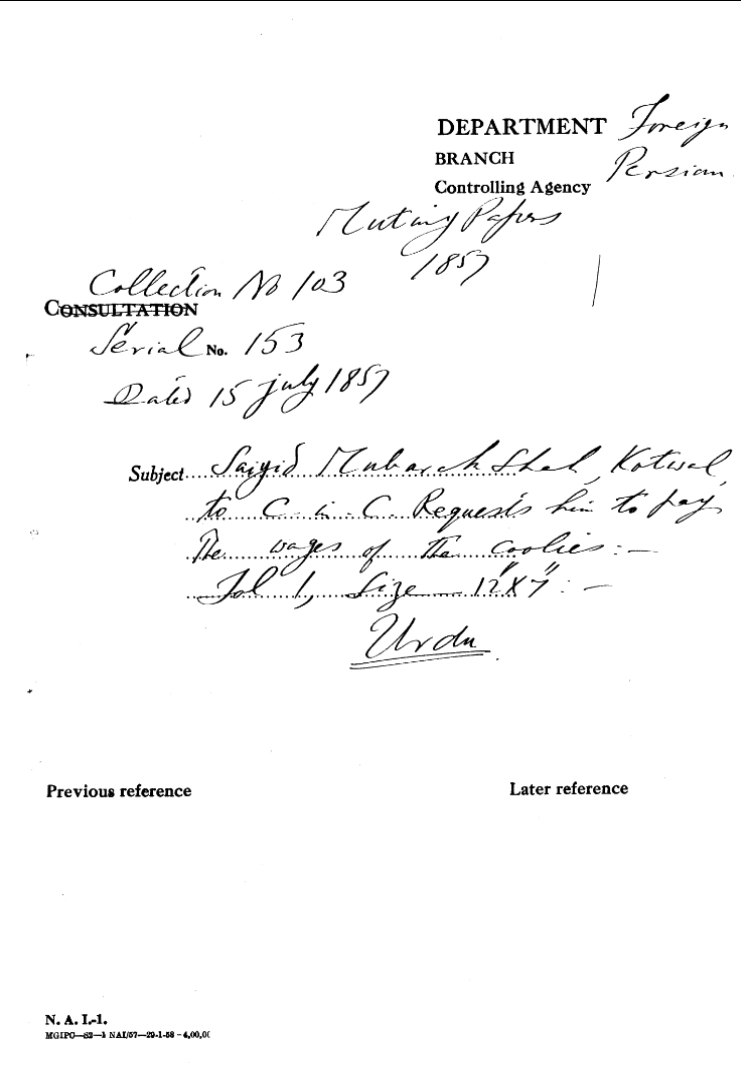 DEPARTMENT Foreign
BRANCH Persian
Controlling Agency
Mutiny Papers
1857
Collection No 103
CONSULTATION
Serial No. 153
Dated 15 july 1857
Subject Saiyid Mubarak Shah, Kotwal,
to C. in. C. Requests him to pay
The wages of the coolies:—
Fol 1, Size 12"X7":—
Urdu
Previous reference Later reference
N. A. I.-1.
MGIPC—S2—1 NAI/57—29-1-58—4,00,00